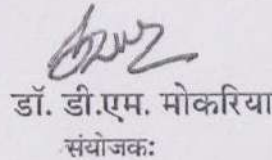 डॉ. डी.एम. मोकरिया
संयोजक: